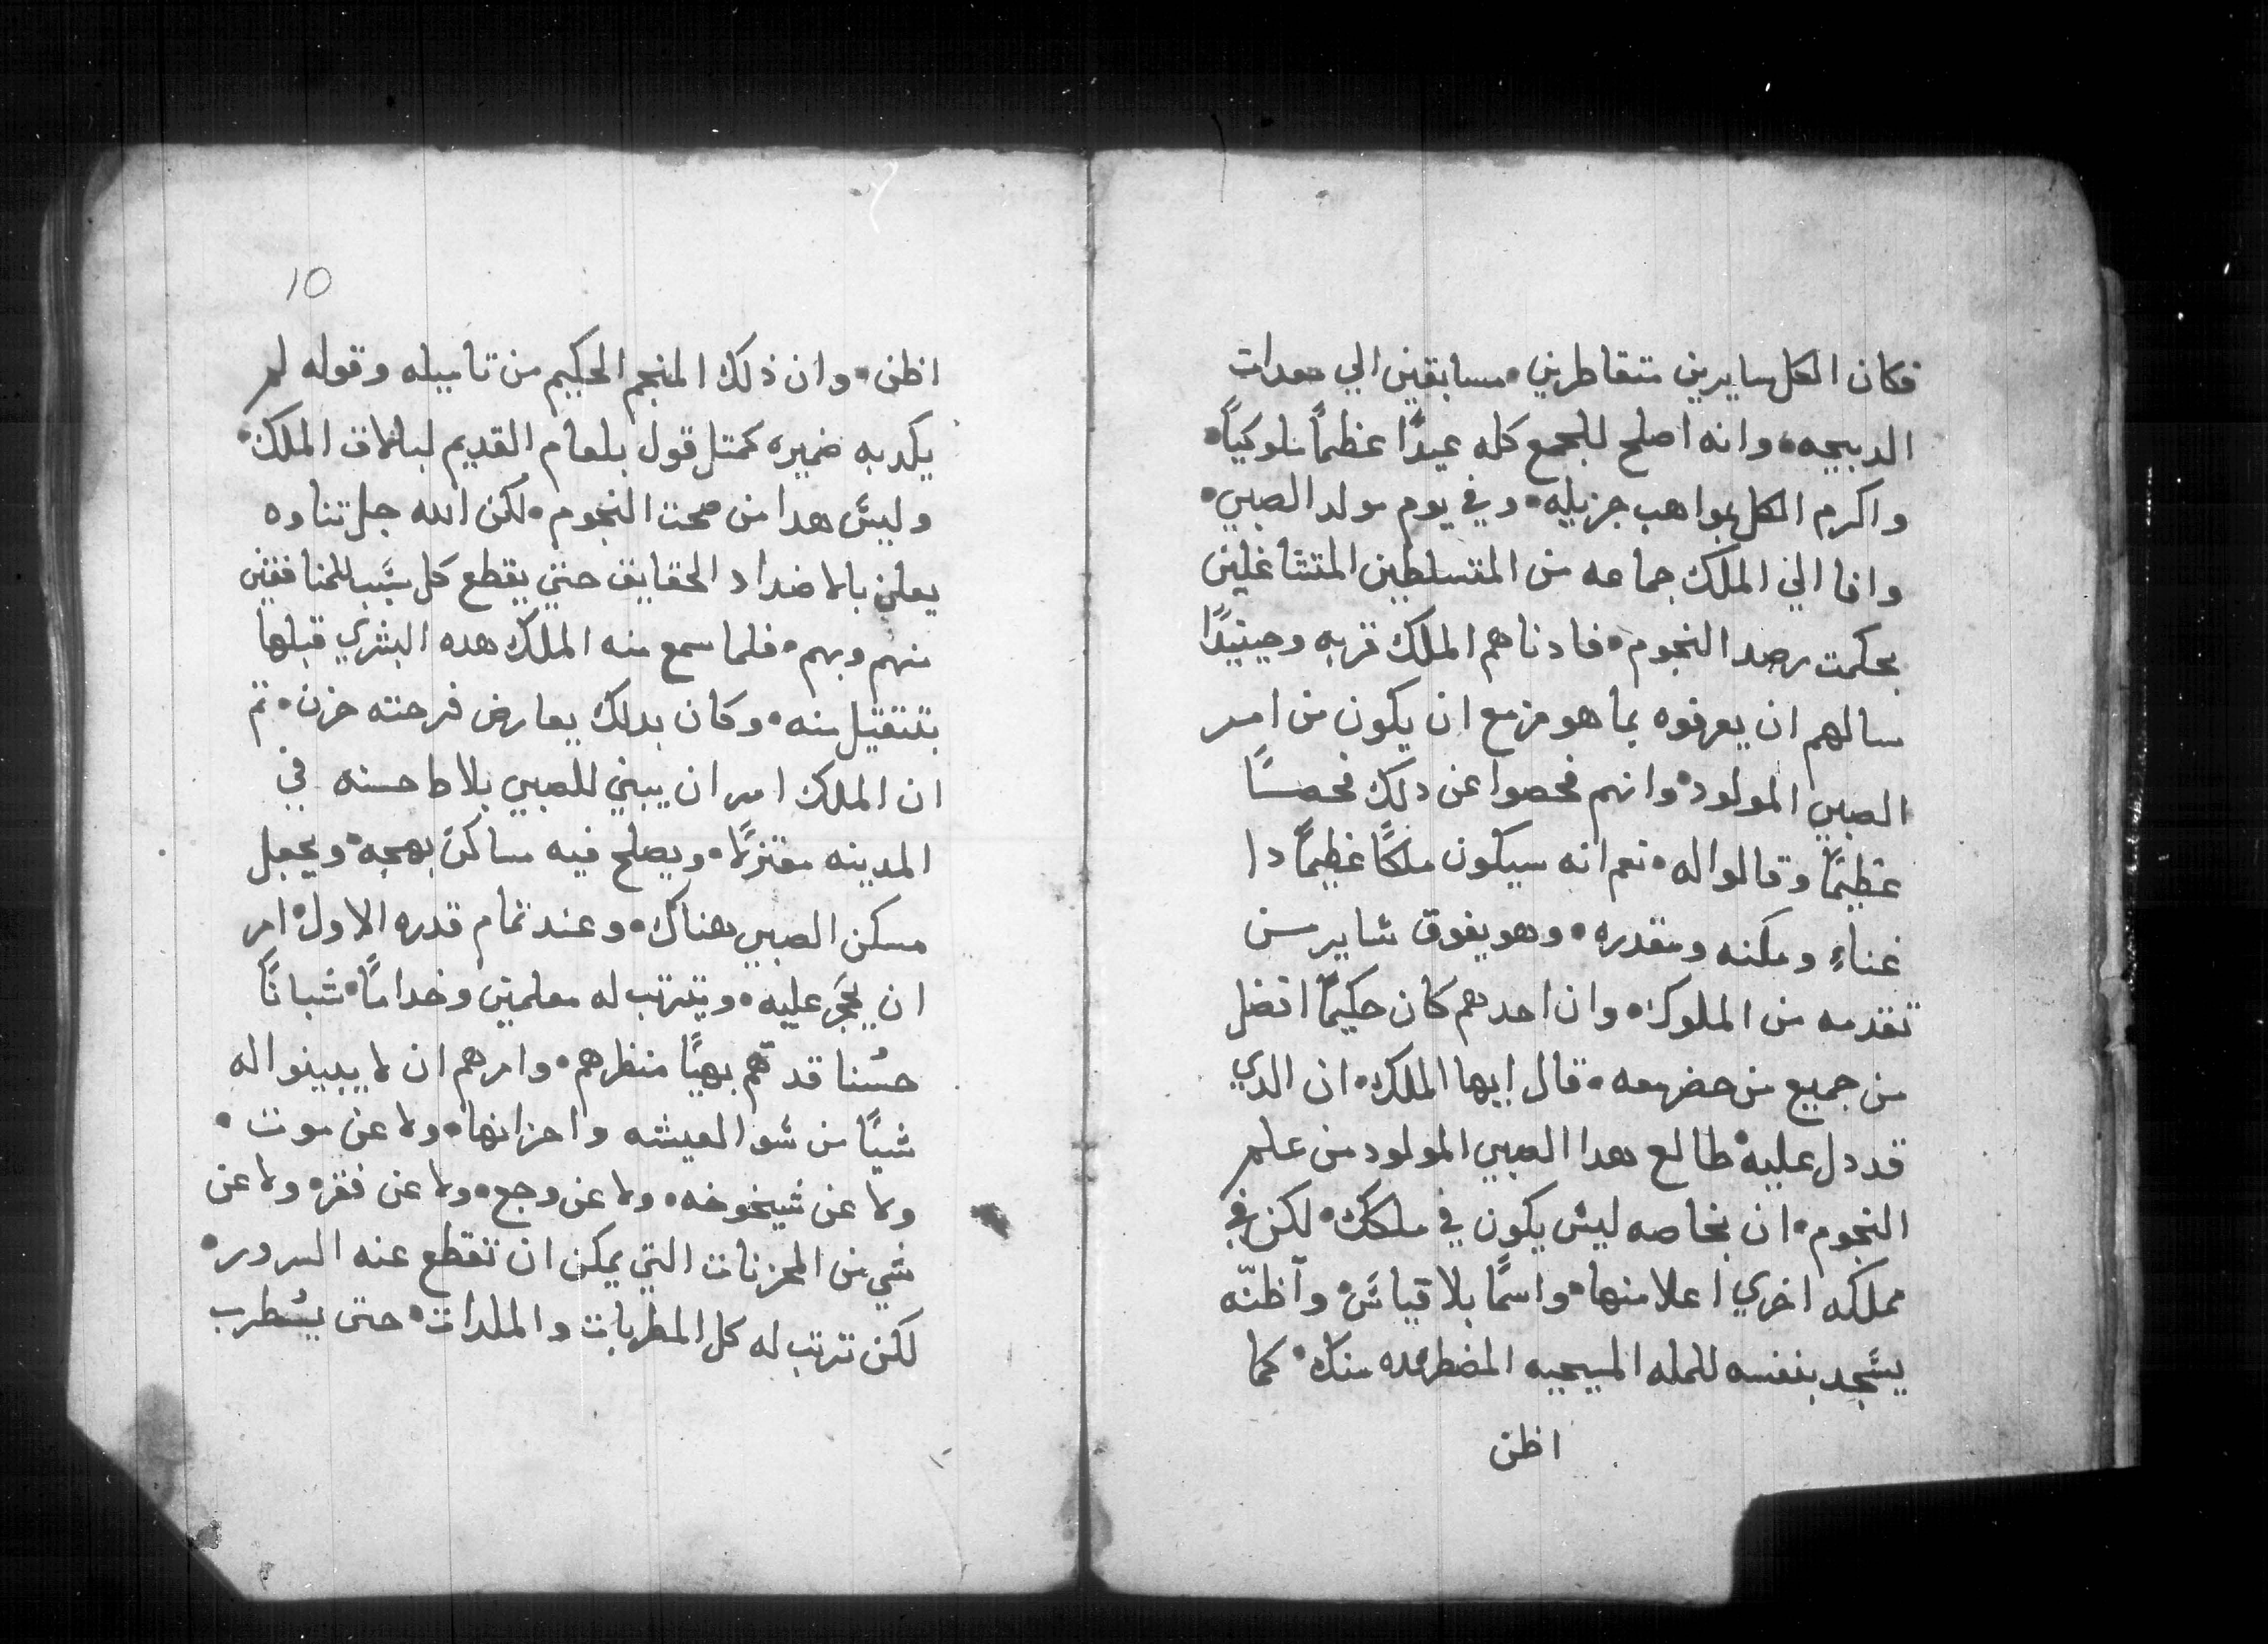 فكان الكل سايرين متقاطرين • مسابقين الي معدات
الدبيحه • وانه اصلح للجمع كله عيدًا عظمًا ملوكيًا •
واكرم الكل بمواهب جزيله • وفي يوم مولد الصبي •
وافا الي الملك جماعه من المتسلطين المتشاغلين
بحكمت رصد النجوم • فادناهم الملك قربه وحينيدًا
سالهم ان يعرفوه بما هو مزمع ان يكون من امر
الصبي المولود • وانهم فحصوا عن دلك فحصًا
عظيمًا وقالوا له • نعم انه سيكون ملكًا عظيمًا دا
غناءٍ ومكنه ومقدره • وهو يفوق شاير من
تقدمه من الملوك • وان احدهم كان حكيمًا افضل
من جميع من حضر معه • قال ايها الملك • ان الدي
قد دل عليه طالع هدا الصبي المولود من علم
النجوم • ان نجاحه ليش يكون في ملكك • لكن في
مملكه اخري اعلا منها • واسمًا بلا قياش • وأظنّه
يسجد بنفسه للمله المسيحيه المضطرده منك • كما
اظن
10
اظن • وان ذلك المنجم الحكيم من تاميله وقوله لم
يكدبه ضميره كمتل قول بلعام القديم لبالاق الملك •
وليش هدا من صحت النجوم • لكن الله جل تناوه
يعلن بالاضداد الحقايق حتي يقطع كل سبب للمنافقين
منهم وبهم • فلما سمع منه الملك هده البشري قبلها
بتتقيل منه • وكان بدلك يعارض فرحته حزن • تم
ان الملك امر ان يبني للصبي بلاط حسنه في
المدينه معتزلًا • ويصلح فيه مساكنً بهجه • ويجعل
مسكن الصبي هناك • وعند تمام قدره الاول • امر
ان يحجر عليه • ويترتب له معلمين وخدامًا • شبانًا
حسُنا قدهم بهيًا منظرهم • وامرهم ان لا يبينوا له
شيًا من شو المعيشه واحزانها • ولا عن موت •
ولا عن شيخوخه • ولا عن وجع • ولا عن فقر • ولا عن
شي من المحزنات التي يمكن ان تقطع عنه السرور •
لكن ترتب له كل المطربات والملدات • حتي يسُطرب